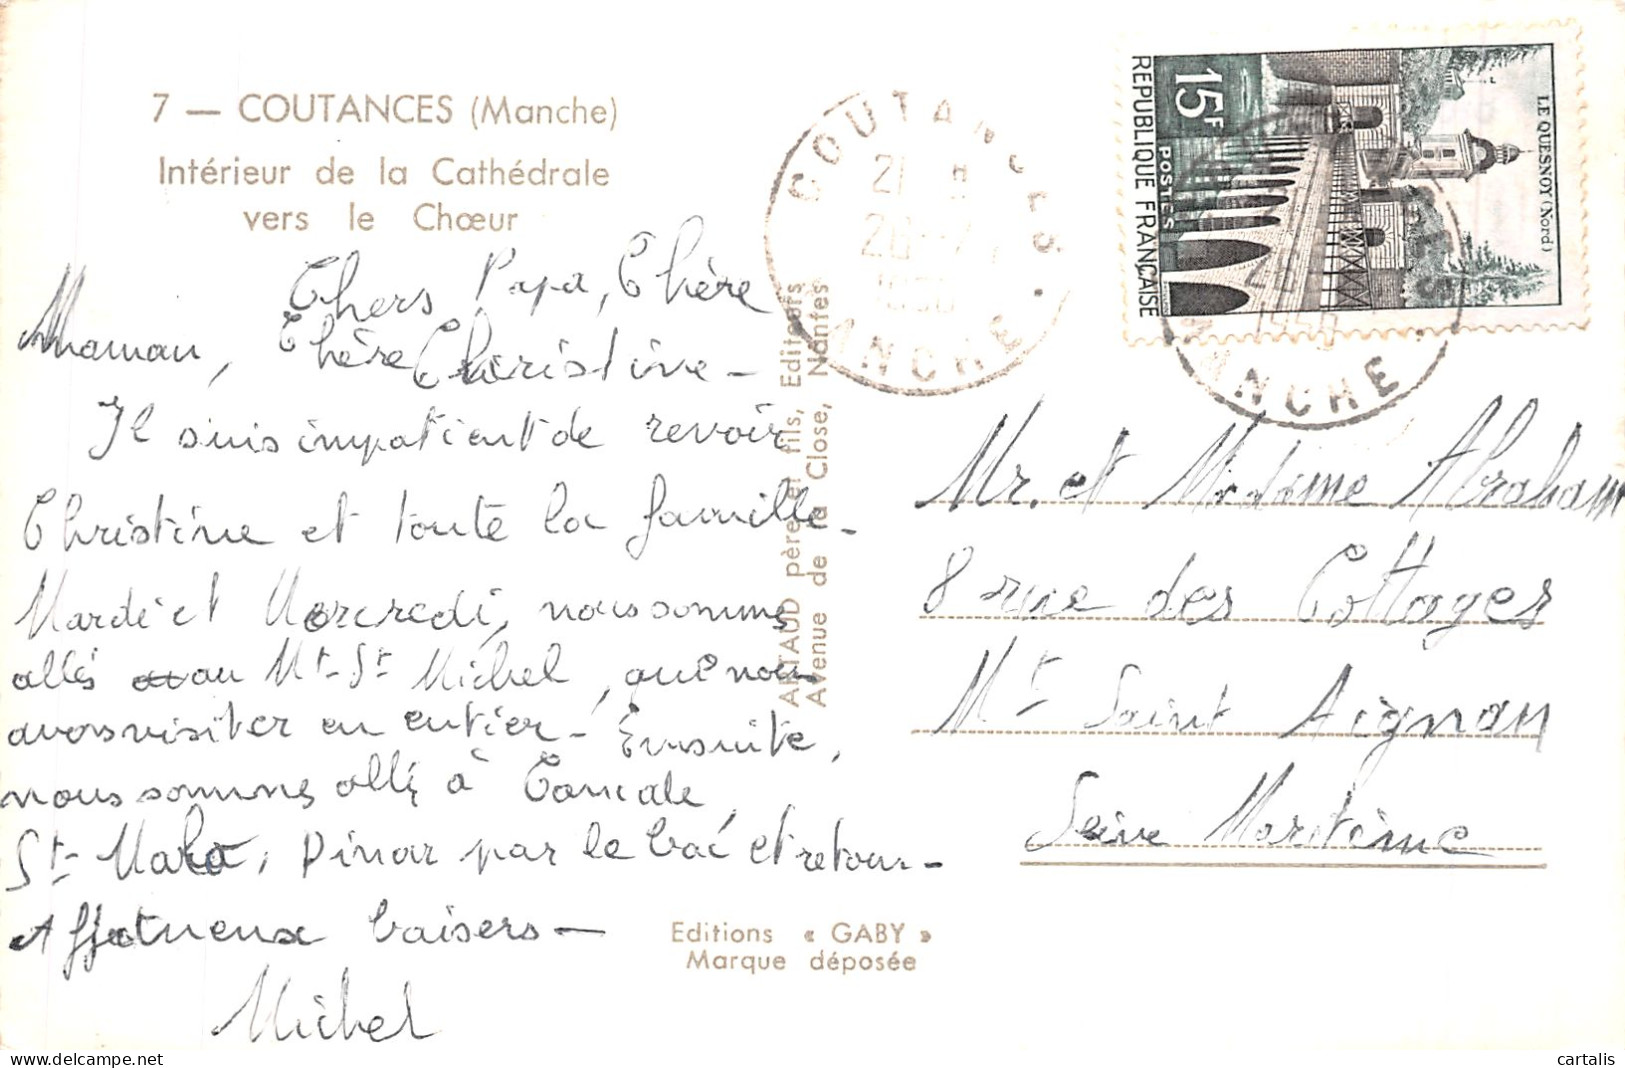 7 — COUTANCES (Manche)
Intérieur de la Cathédrale
vers le Chœur
Chers Papa, Chère
Maman, Chère Christine -
Je suis impatient de revoir
Christine et toute la famille -
Mardi et Mercredi, nous sommes
allés au Mt-St Michel, que nous
avons visiter en entier - Ensuite,
nous sommes allés à Cancale,
St-Malo, Dinar par le bac et retour -
Affetueux baisers -
Michel
ARTAUD père et fils, Editeurs
Avenue de la Close, Nantes
Editions « GABY »
Marque déposée
COUTANCES
21 H
MANCHE
REPUBLIQUE FRANÇAISE
15F
POSTES
LE QUESNOY (Nord)
MANCHE
Mr. et Madame Abraham
8 rue des Cottages
Mt Saint Aignan
Seine Maritime
delcampe.net
cartalis